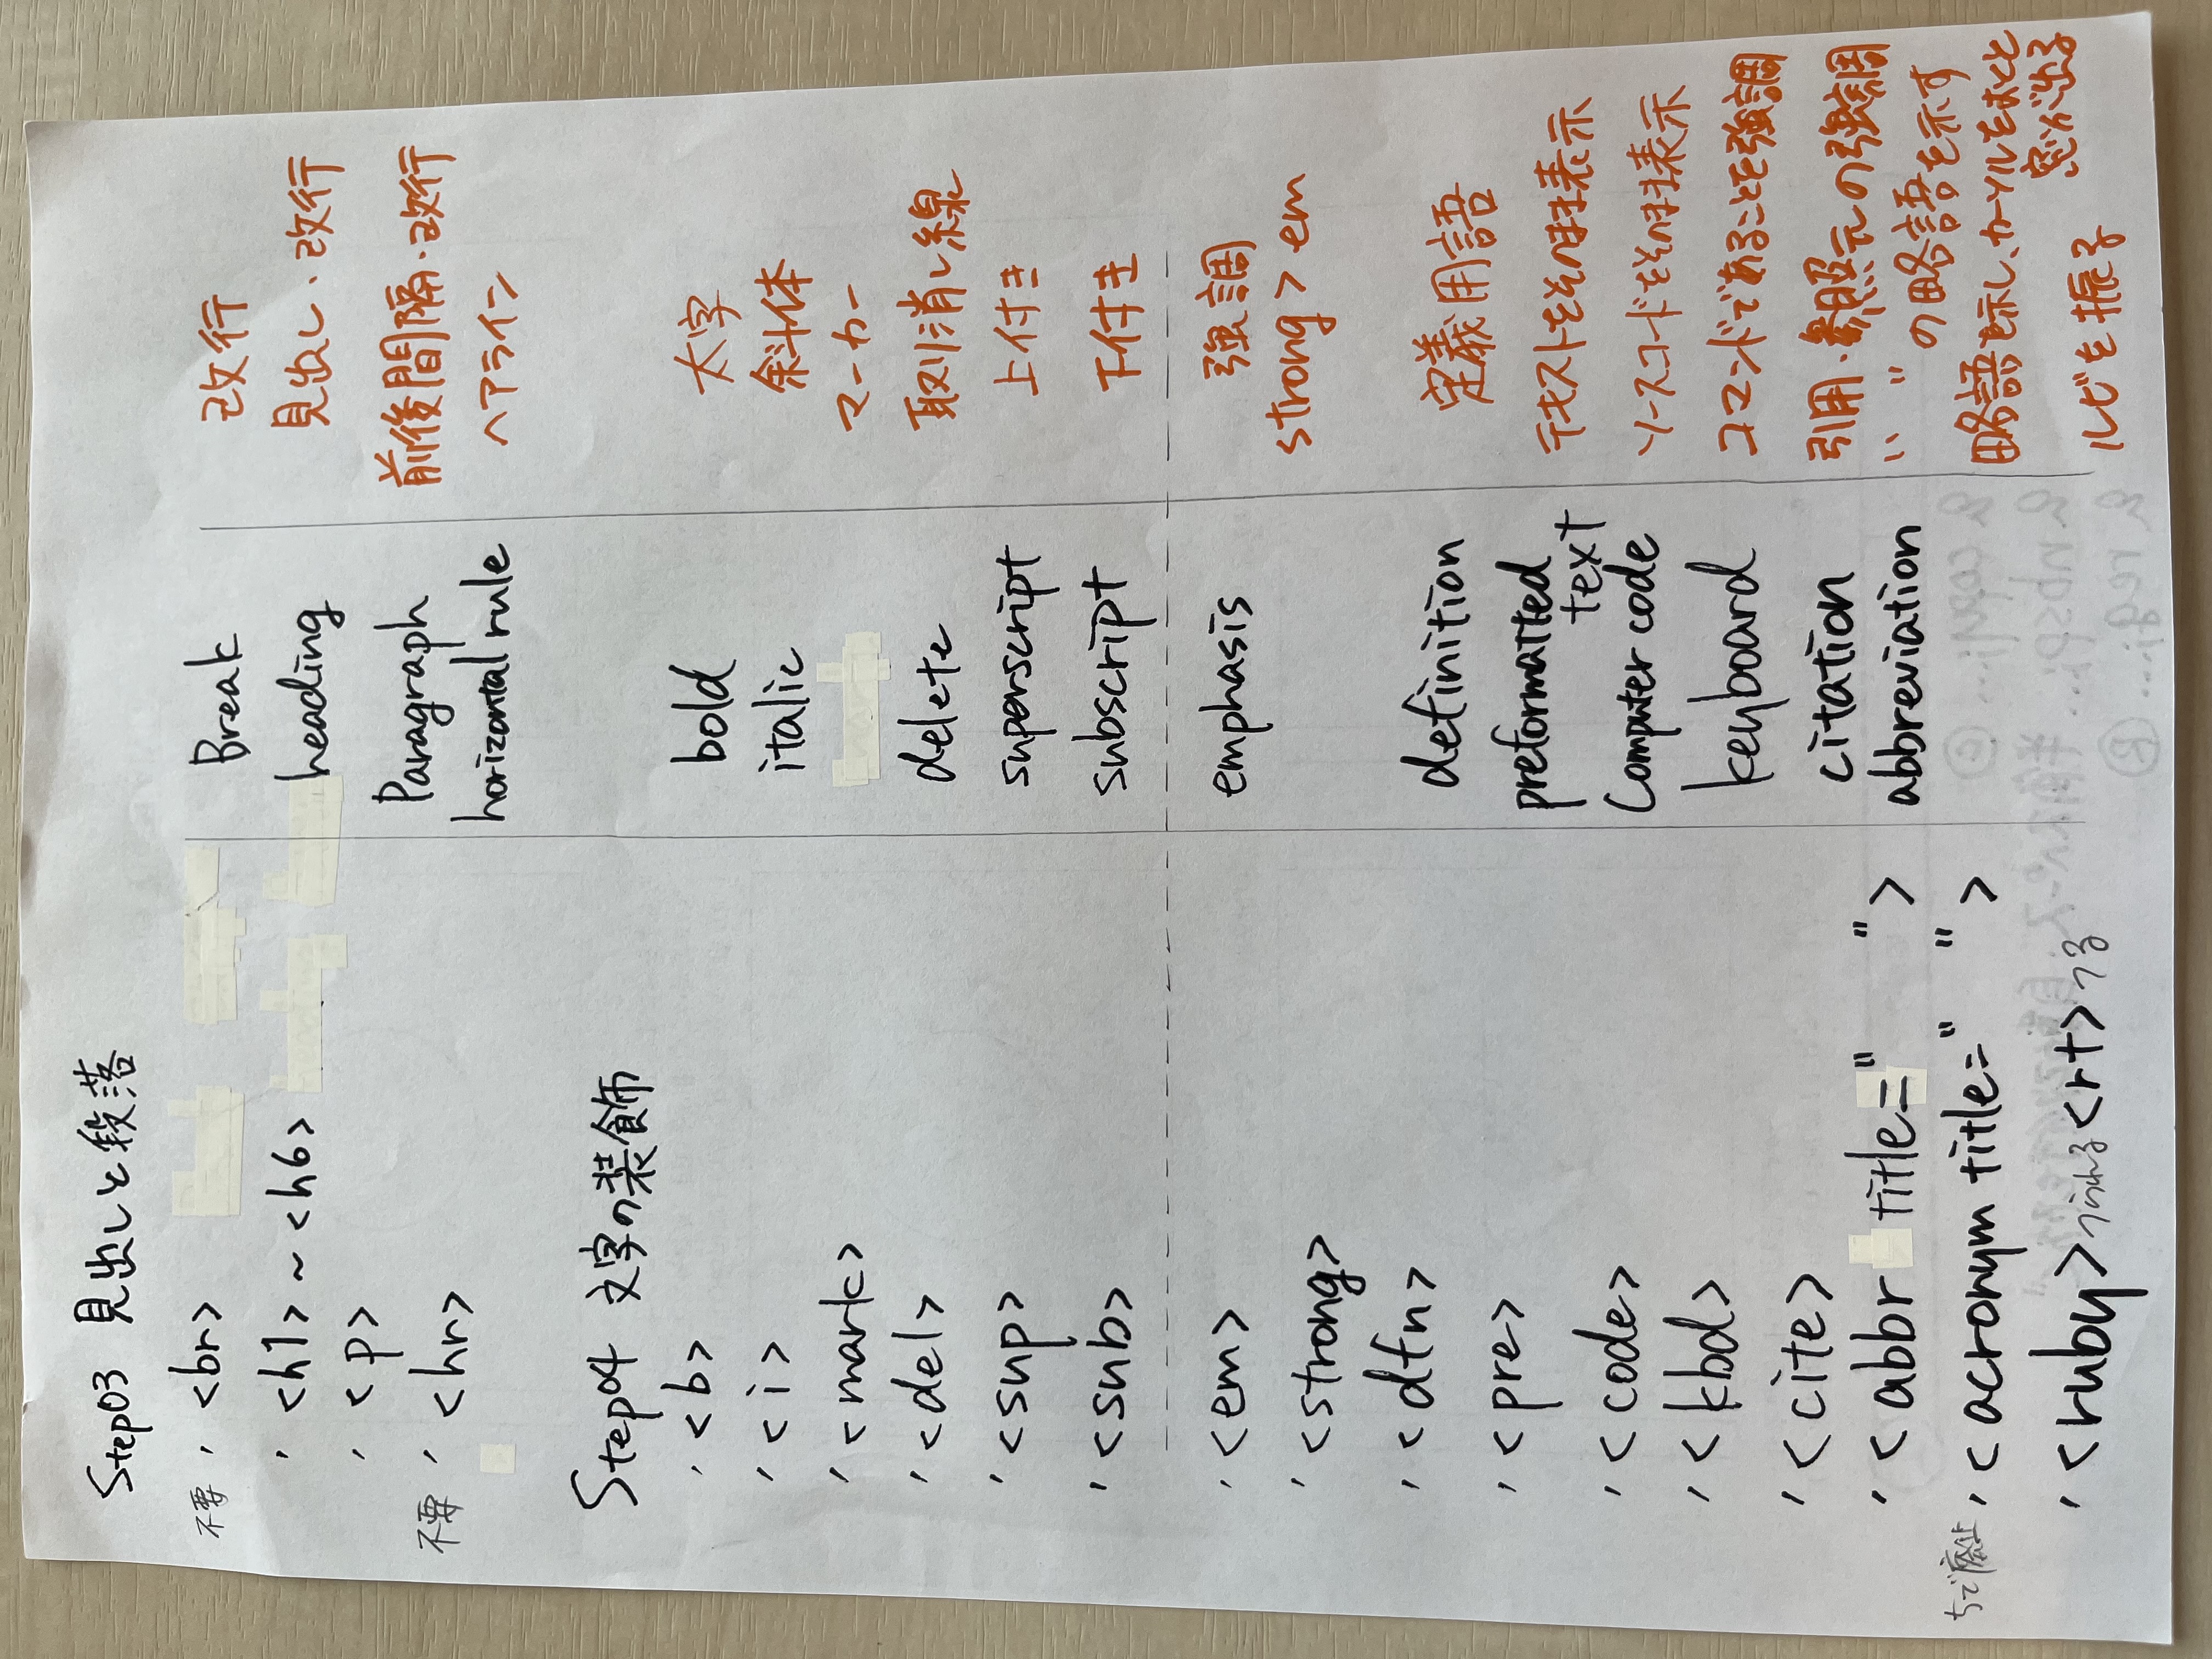 Step03 見出しと段落
不要 ・ <br> Break 改行
・ <h1> ~ <h6> heading 見出し・改行
・ <p> Paragraph 前後間隔・改行
不要 ・ <hr> horizontal rule ヘアライン
Step04 文字の装飾
・ <b> bold 太字
・ <i> italic 斜体
・ <mark> マーカー
・ <del> delete 取り消し線
・ <sup> superscript 上付き
・ <sub> subscript 下付き
・ <em> emphasis 強調
・ <strong> strong > em
・ <dfn> definition 定義用語
・ <pre> preformatted text テキストをそのまま表示
・ <code> Computer code ソースコードをそのまま表示
・ <kbd> keyboard コマンドであることを強調
・ <cite> citation 引用・参照元の強調
・ <abbr title=" "> abbreviation " " の略語を示す
5で廃止 ・ <acronym title=" "> 略語を示し、カーソルをおくと
窓が出る
・ <ruby> つられる <rt> つる ルビを振る
&copy;… Ⓒ
&nbsp;… 半角スペース・自動
&reg;… Ⓡ